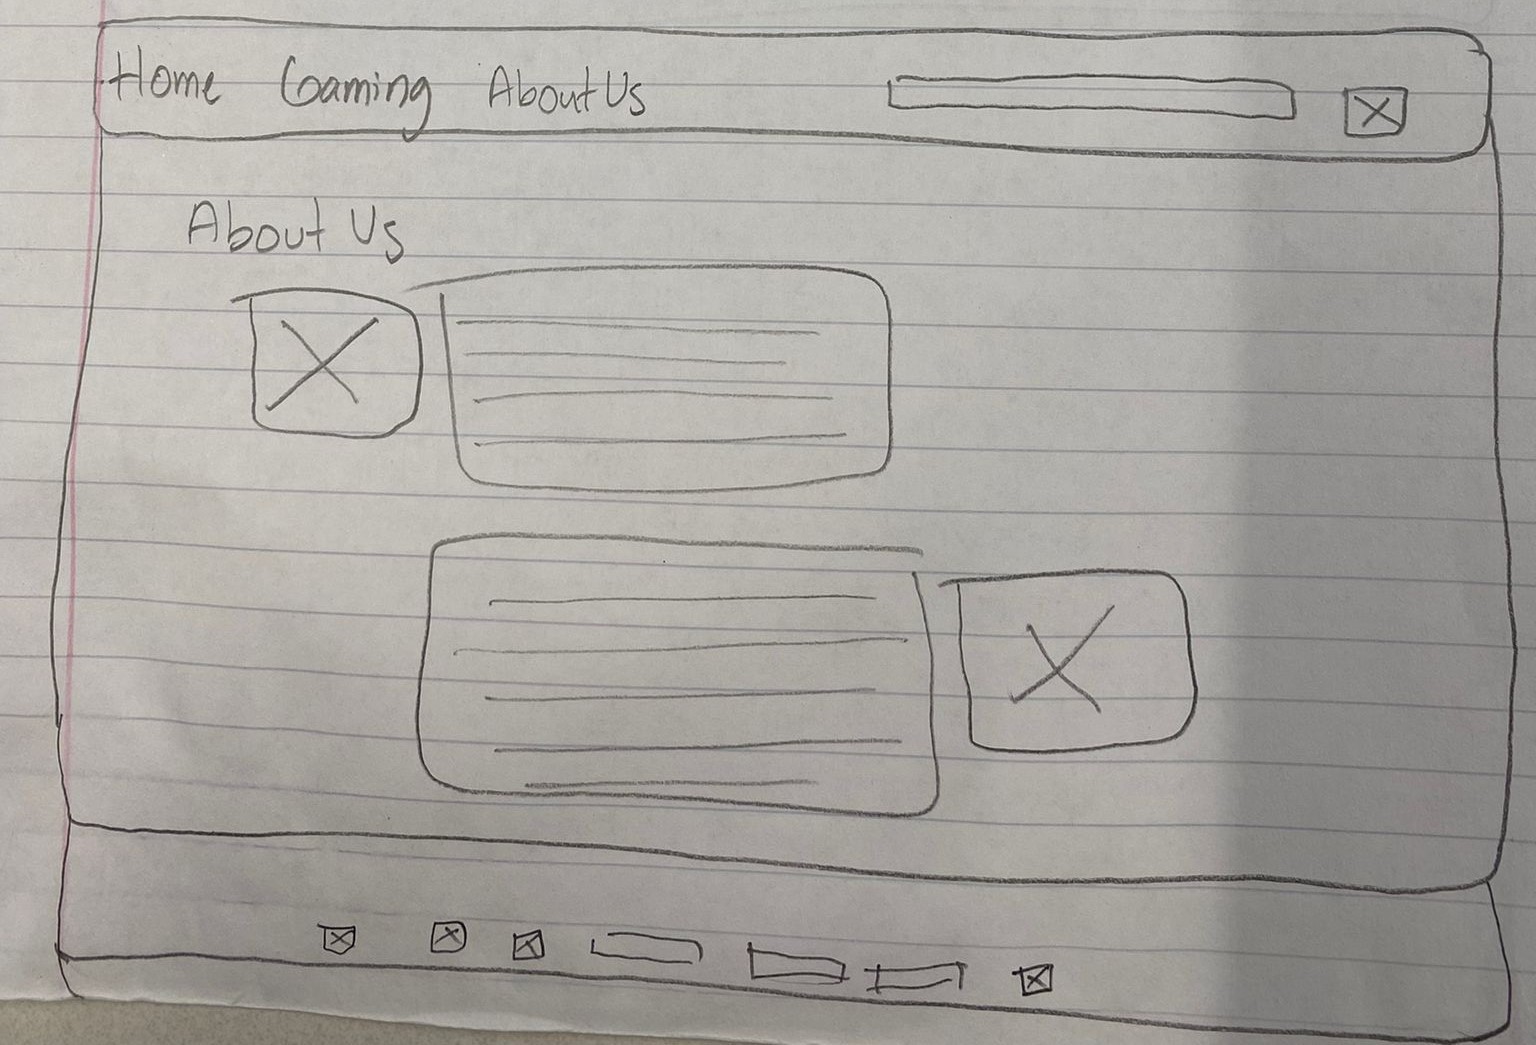 Home Gaming About Us
About Us